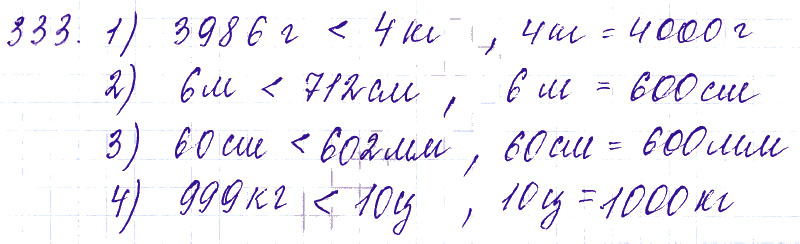 333. 1) 3986 г < 4 кг, 4 кг = 4000 г
2) 6 м < 712 см, 6 м = 600 см
3) 60 см < 602 мм, 60 см = 600 мм
4) 999 кг < 10 ц, 10 ц = 1000 кг